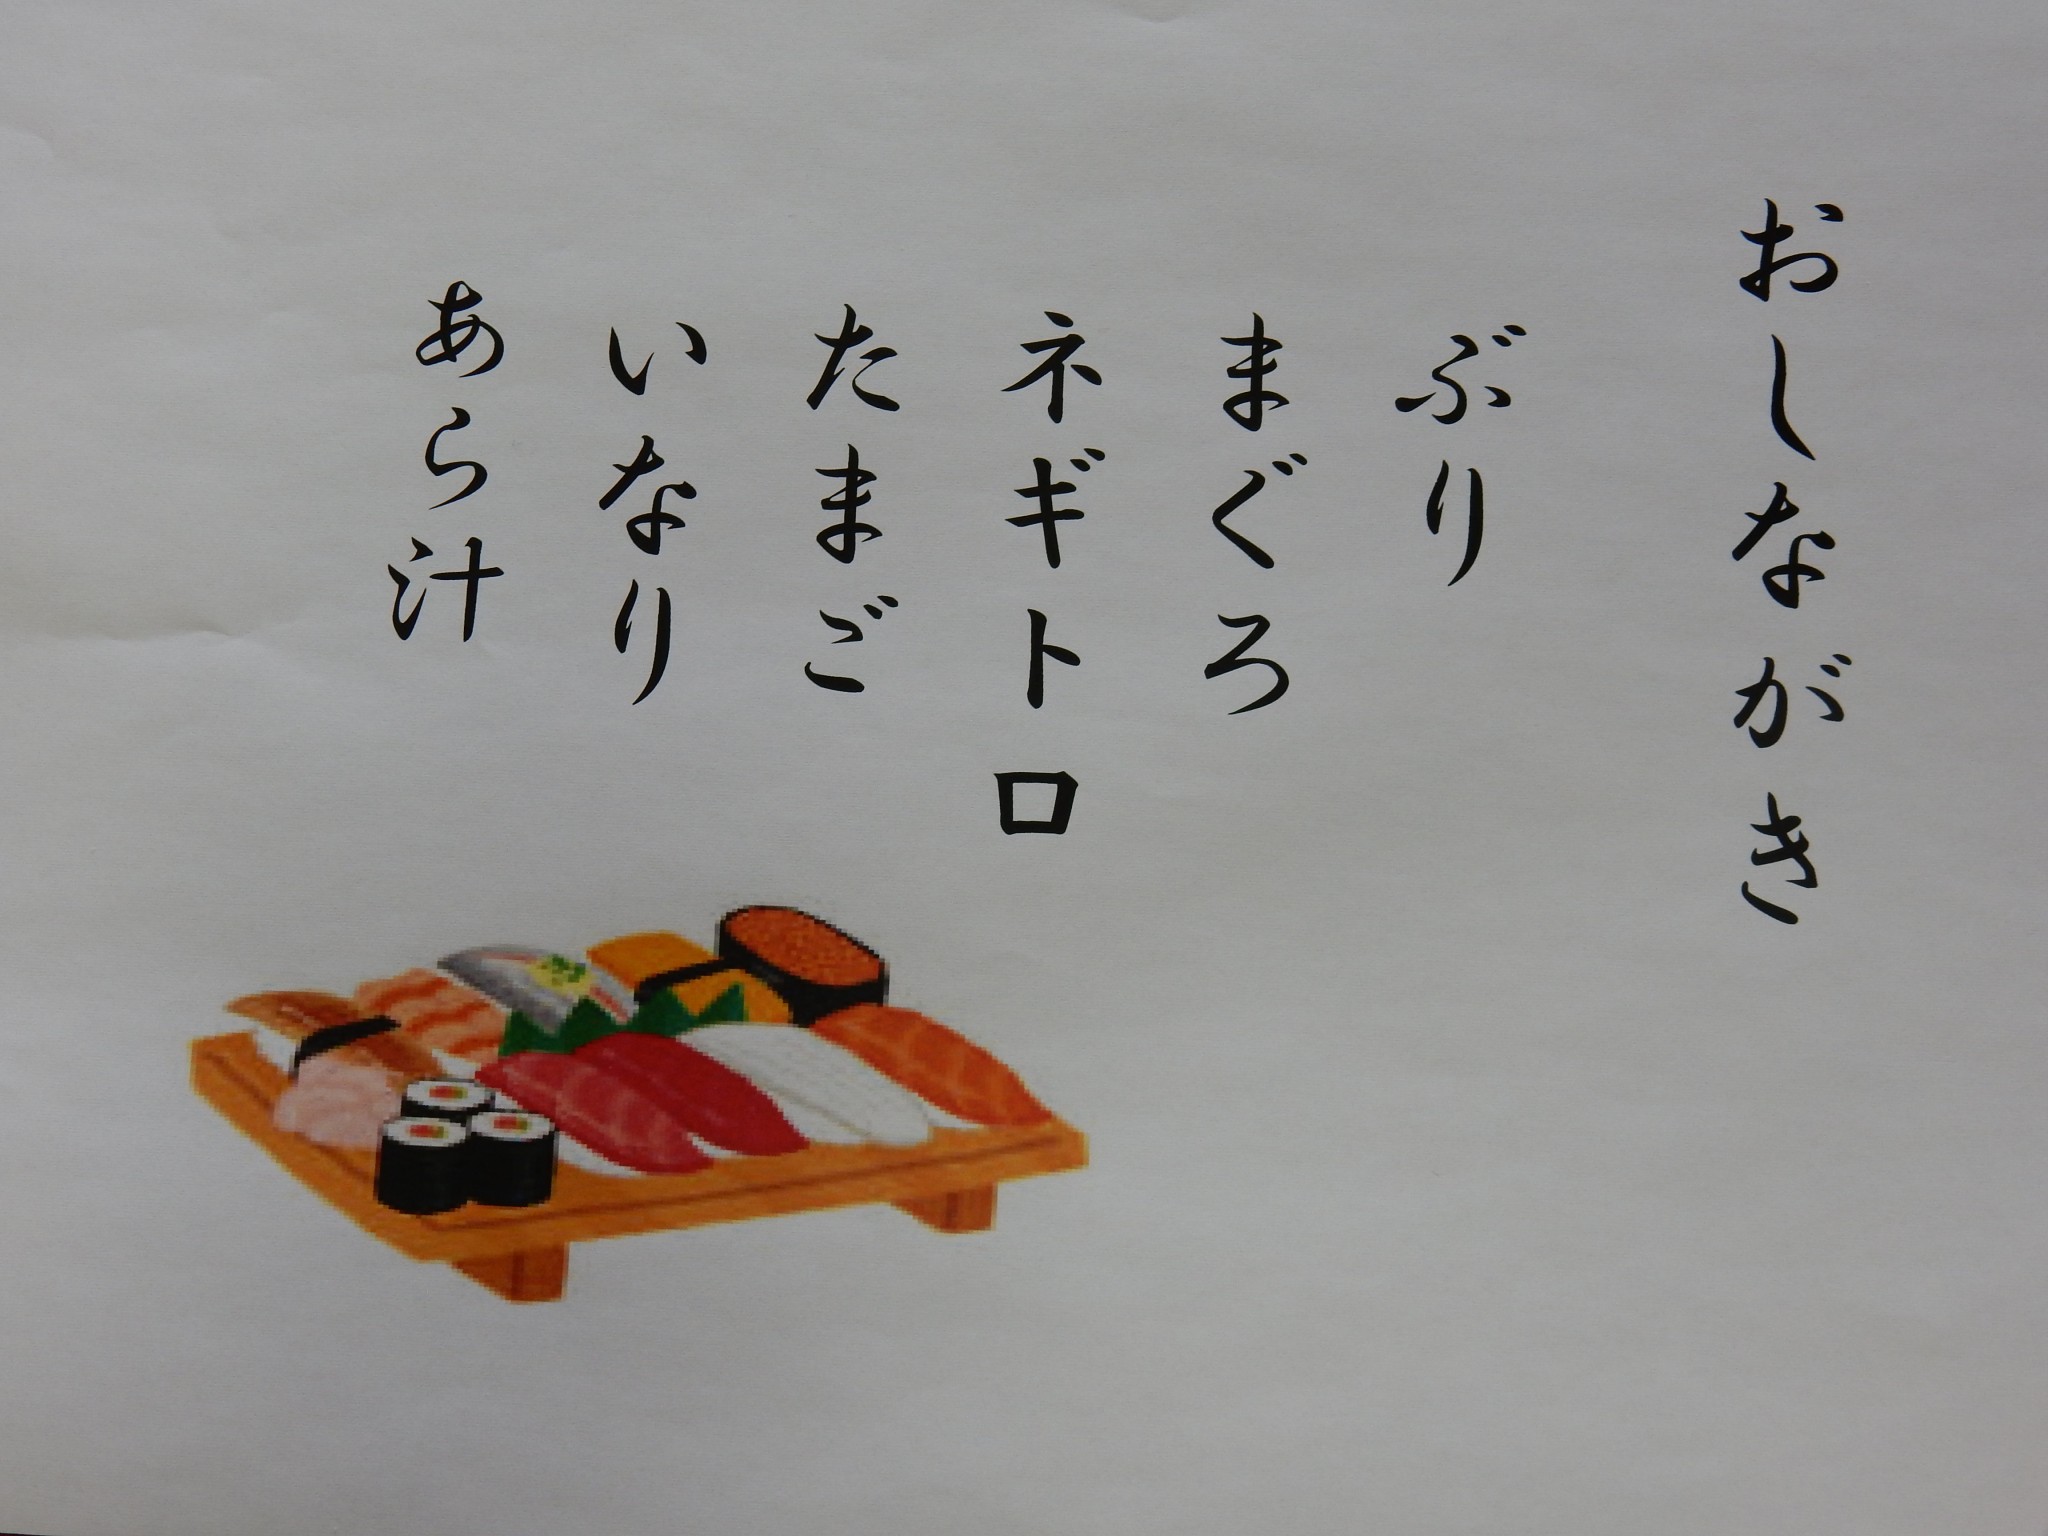 おしながき
ぶり
まぐろ
ネギトロ
たまご
いなり
あら汁